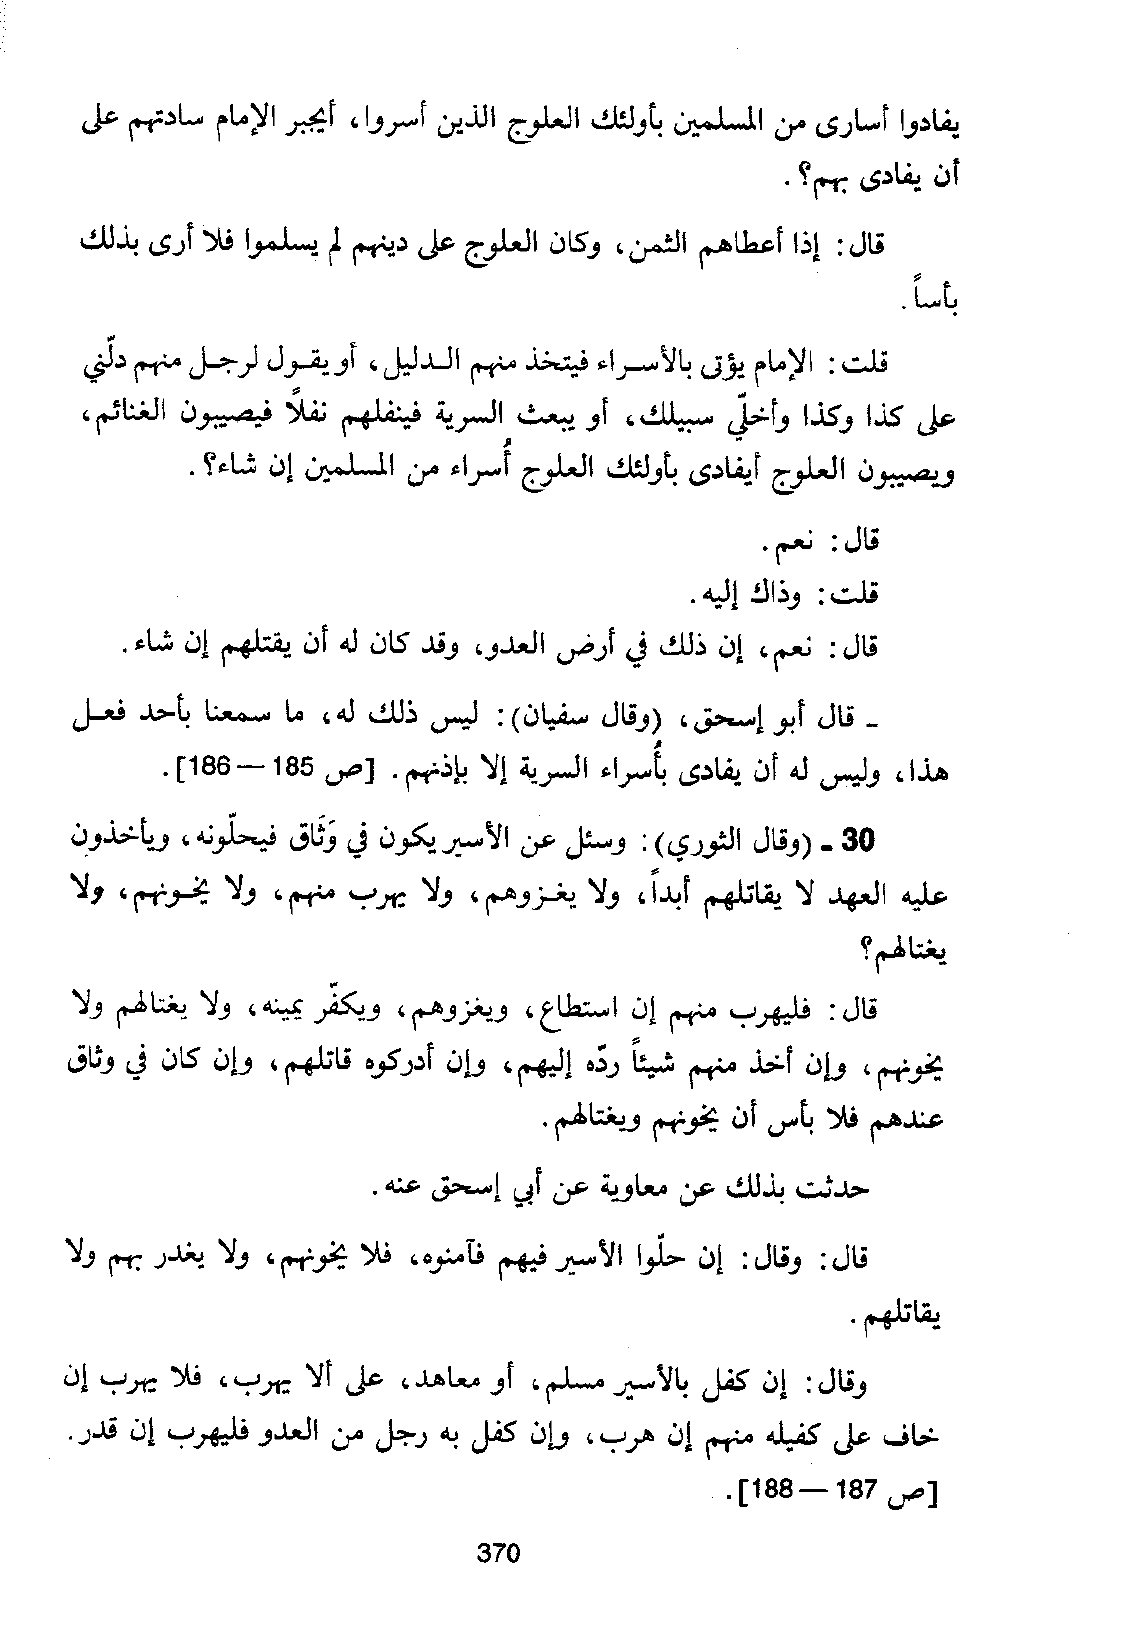 يفادوا أسارى من المسلمين بأولئك العلوج الذين أسروا، أيجبر الإمام سادتهم على
أن يفادى بهم؟.
قال: إذا أعطاهم الثمن، وكان العلوج على دينهم لم يسلموا فلا أرى بذلك
بأساً.
قلت: الإمام يؤتى بالأسراء فيتخذ منهم الدليل، أو يقول لرجل منهم دلّني
على كذا وكذا وأخلّي سبيلك، أو يبعث السرية فينفلهم نفلاً فيصيبون الغنائم،
ويصيبون العلوج أيفادى بأولئك العلوج أُسراء من المسلمين إن شاء؟.
قال: نعم.
قلت: وذاك إليه.
قال: نعم، إن ذلك في أرض العدو، وقد كان له أن يقتلهم إن شاء.
ـ قال أبو إسحق، (وقال سفيان): ليس ذلك له، ما سمعنا بأحد فعل
هذا، وليس له أن يفادى بأُسراء السرية إلا بإذنهم. [ص 185 — 186].
30 ـ (وقال الثوري): وسئل عن الأسير يكون في وَثَاق فيحلّونه، ويأخذون
عليه العهد لا يقاتلهم أبداً، ولا يغزوهم، ولا يهرب منهم، ولا يخونهم، ولا
يغتالهم؟
قال: فليهرب منهم إن استطاع، ويغزوهم، ويكفّر يمينه، ولا يغتالهم ولا
يخونهم، وإن أخذ منهم شيئاً ردّه إليهم، وإن أدركوه قاتلهم، وإن كان في وثاق
عندهم فلا بأس أن يخونهم ويغتالهم.
حدثت بذلك عن معاوية عن أبي إسحق عنه.
قال: وقال: إن حلّوا الأسير فيهم فآمنوه، فلا يخونهم، ولا يغدر بهم ولا
يقاتلهم.
وقال: إن كفل بالأسير مسلم، أو معاهد، على ألا يهرب، فلا يهرب إن
خاف على كفيله منهم إن هرب، وإن كفل به رجل من العدو فليهرب إن قدر.
[ص 187 — 188].
370